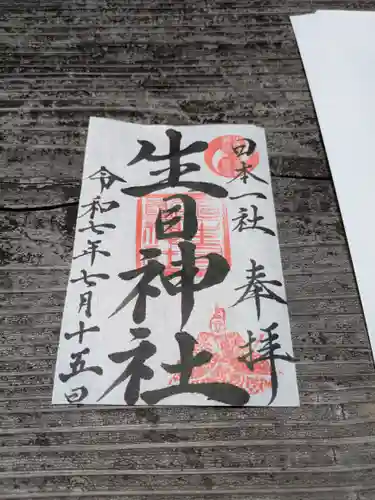 日本一社
奉拝
生目神社
令和七年七月十五日